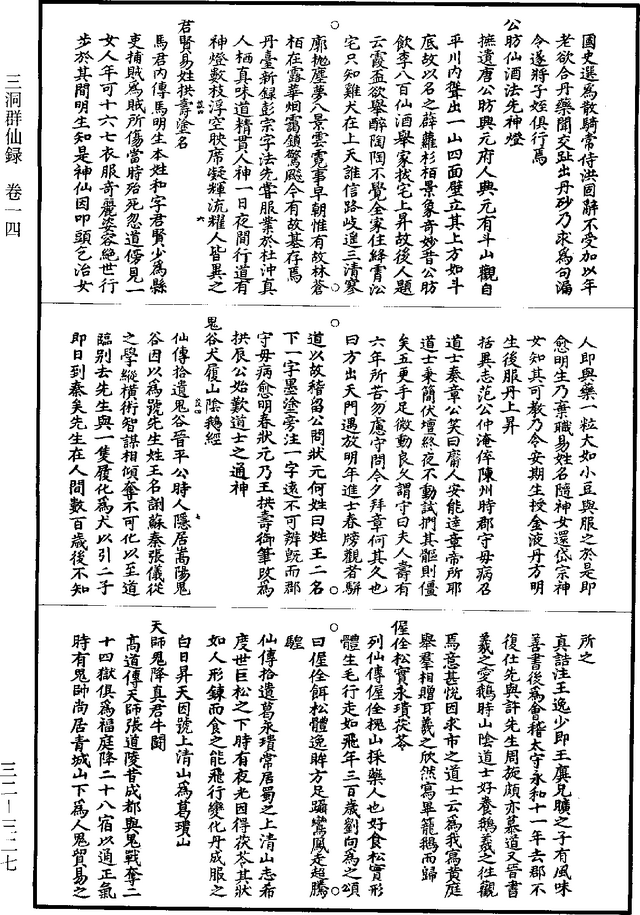 三洞群仙録　卷一四
三二—三二七
國史選爲散騎常侍洪固辭不受加以年
老欲合丹藥聞交趾出丹砂乃求爲句漏
令遂將子姪俱行焉
公昉仙酒法先神燈
撫遺唐公昉興元府人興元有斗山觀自
平川内聳出一山四面壁立其上方如斗
底故以名之薜蘿杉栢景象奇妙昔公昉
飲李八百仙酒舉家拔宅上昇故後人題
云霞盃欲舉醉陶陶不覺全家住絳霄
宅只知雞犬在上天誰信路岐遥三清寥
廓抛塵夢八景雲霓事早朝惟有故林蒼
栢在露華烟靄鎖驚飈今有故基存焉
丹臺新録彭宗字法先嘗服業於杜沖真
人栖真味道精貫人神一日夜間行道有
神燈數枝浮空映席凝輝流耀人皆異之
君賢易姓拱壽塗名
馬君内傳馬明生本姓和字君賢少爲縣
吏捕賊爲賊所傷當時殆死忽道傍見一
女人年可十六七衣服奇麗姿容絶世行
步於其間明生知是神仙因叩頭乞治女
人即與藥一粒大如小豆與服之於是即
愈明生乃棄職易姓名隨神女還岱宗神
女知其可教乃令安期生授金液丹方明
生後服丹上昇
括異志范公仲淹倅陳州時郡守母病召
道士奏章公笑曰齋人安能達章帝所耶
道士秉簡伏壇終夜不動試捫其軀則僵
矣五更手足微動良久謂守曰夫人壽有
六年所苦勿慮守問今夕拜章何其久也
曰方出天門遇放明年進士春牓觀者駢
道以故稽留公問狀元何姓曰姓王二名
下一字墨塗旁注一字遠不可辨既而郡
守母病愈明春狀元乃王拱壽御筆改爲
拱辰公始歎道士之通神
鬼谷犬履山陰鵝經
仙傳拾遺鬼谷晉平公時人隱居嵩陽鬼
谷因以爲號先生姓王名詡蘇秦張儀從
之學縱横術智謀相傾奪不可化以至道
臨别去先生與一隻履化爲犬以引二子
即日到秦矣先生在人間數百歲後不知
所之
真誥注王逸少即王廙兄曠之子有風味
善書後爲會稽太守永和十一年去郡不
復仕先與許先生周旋頗亦慕道又晉書
羲之愛鵝時山陰道士好養鵝羲之往觀
焉意甚悦因求市之道士云爲我寫黄庭
舉羣相贈耳羲之欣然寫畢籠鵝而歸
偓佺松實永璝茯苓
列仙傳偓佺槐山採藥人也好食松實形
體生毛行走如飛年三百歲劉向爲之頌
曰偓佺餌松體逸眸方足躡鸞鳳走超騰
驤
仙傳拾遺葛永璝常居蜀之上清山志希
度世巨松之下時有夜光因得茯苓其狀
如人形鍊而食之能飛行變化丹成服之
白日昇天因號上清山爲葛璝山
天師鬼降真君牛鬪
高道傳天師張道陵昔成都與鬼戰奪二
十四獄俱爲福庭降二十八宿以通正氣
時有鬼帥尚居青城山下爲人鬼貿易之